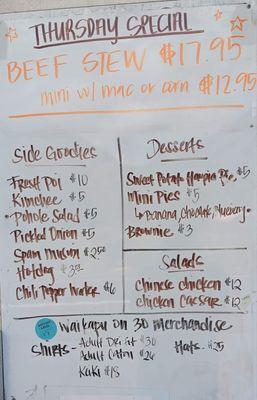 THURSDAY SPECIAL
BEEF STEW $17.95
mini w/ mac or corn $12.95
Side Goodies
Fresh Poi $10
Kimchee $5
Pohole Salad $5
Pickled Onion $5
Spam musubi $2.50
Hotdog
Chili Pepper Water $6
Desserts
Sweet Potato Haupia Pie $5
Mini Pies $5
Banana, Chocolate, Blueberry
Brownie $3
Salads
Chinese chicken $12
Chicken Caesar $12
Waikapu on 30 Merchandise
Shirts - Adult Dri Fit $30
Adult Cotton $26
Keiki $18
Hats - $25